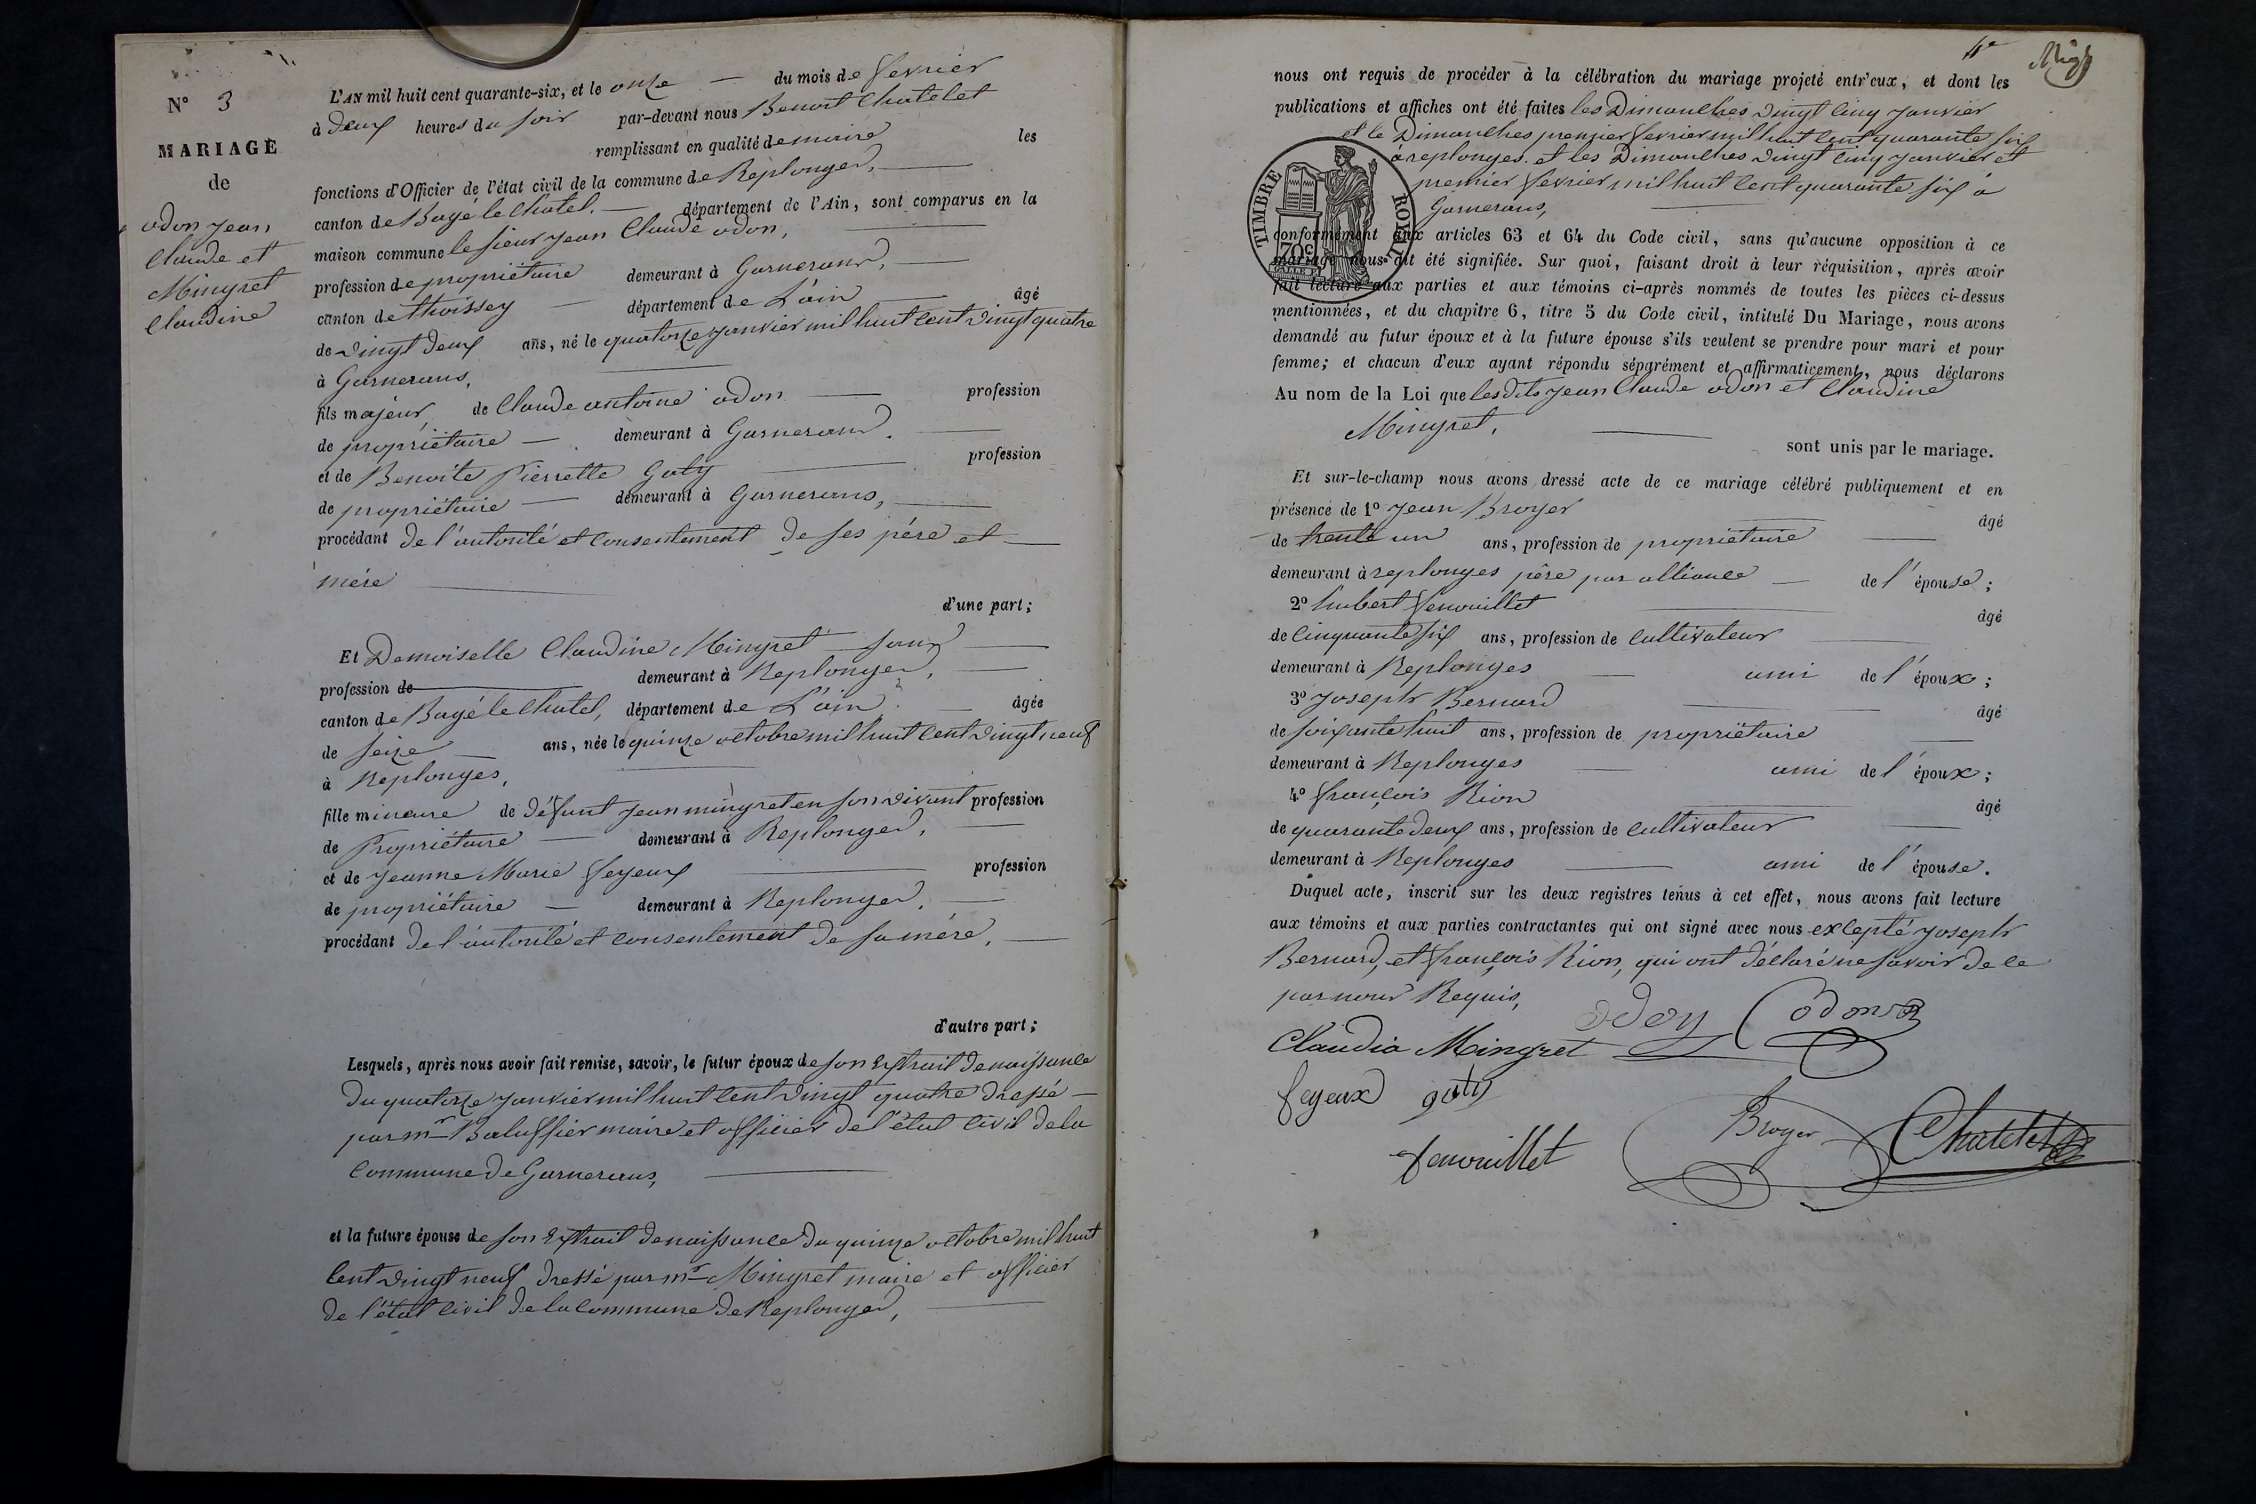 N° 3
MARIAGE
de
odon jean
Claude et
Mingret
Claudine
L'AN mil huit cent quarante-six, et le onze du mois de fevrier
à deux heures du soir par-devant nous Benoit Chatelet
remplissant en qualité de maire les
fonctions d'Officier de l'état civil de la commune de Replonges,
canton de Bagé le Chatel. département de l'Ain, sont comparus en la
maison commune le sieur jean Claude odon,
profession de propriétaire demeurant à Garnerans,
canton de thoissey département de L'ain âgé
de vingt deux ans, né le quatorze janvier mil huit cent vingt quatre
à Garnerans,
fils majeur de Claude antoine odon profession
de propriétaire demeurant à Garnerans.
et de Benoite Pierrette Gaty profession
de propriétaire demeurant à Garnerans,
procédant de l'autorité et consentement de ses pére et
mére
d'une part;
Et Demoiselle Claudine Mingret sans
profession de demeurant à Replonges,
canton de Bagé le Chatel, département de L'ain. âgée
de seize ans, née le quinze octobre mil huit cent vingt neuf
à Replonges,
fille mineure de défunt jean mingret en son vivant profession
de Propriétaire demeurant à Replonges,
et de jeanne Marie feyeux profession
de propriétaire demeurant à Replonges,
procédant de l'autorité et consentement de sa mére,
d'autre part;
Lesquels, après nous avoir fait remise, savoir, le futur époux de son Extrait de naissance
du quatorze janvier mil huit cent vingt quatre dressé
par mr Baluffier maire et officier de l'état civil de la
Commune de Garnerans,
et la future épouse de son Extrait de naissance du quinze octobre mil huit
cent vingt neuf dressé par mr Mingret maire et officier
de l'état civil de la commune de Replonges,
nous ont requis de procéder à la célébration du mariage projeté entr'eux, et dont les
publications et affiches ont été faites les Dimanches vingt cinq janvier
et le Dimanches premier fevrier mil huit cent quarante six
à replonges. et les Dimanches vingt cinq janvier et
premier fevrier mil huit cent quarante six à
Garnerans,
TIMBRE ROYAL
70c
conformément aux articles 63 et 64 du Code civil, sans qu'aucune opposition à ce
mariage nous ait été signifiée. Sur quoi, faisant droit à leur réquisition, après avoir
fait lecture aux parties et aux témoins ci-après nommés de toutes les pièces ci-dessus
mentionnées, et du chapitre 6, titre 5 du Code civil, intitulé Du Mariage, nous avons
demandé au futur époux et à la future épouse s'ils veulent se prendre pour mari et pour
femme; et chacun d'eux ayant répondu séparément et affirmativement, nous déclarons
Au nom de la Loi que lesdits jean Claude odon et Claudine
Mingret,
sont unis par le mariage.
Et sur-le-champ nous avons dressé acte de ce mariage célébré publiquement et en
présence de 1° jean Broyer âgé
de trente un ans, profession de propriétaire
demeurant à replonges pére par alliance de l'épouse;
2° hubert fenouillet âgé
de cinquante six ans, profession de cultivateur
demeurant à Replonges ami de l'époux;
3° joseph Bernard âgé
de soixante huit ans, profession de propriétaire
demeurant à Replonges ami de l'époux;
4° françois Rion âgé
de quarante deux ans, profession de cultivateur
demeurant à Replonges ami de l'épouse.
Duquel acte, inscrit sur les deux registres tenus à cet effet, nous avons fait lecture
aux témoins et aux parties contractantes qui ont signé avec nous excepté joseph
Bernard, et françois Rion, qui ont déclaré ne savoir de ce
par nous Requis,
odon
Claudia Mingret
feyeux gaty
fenouillet Broyer Chatelet